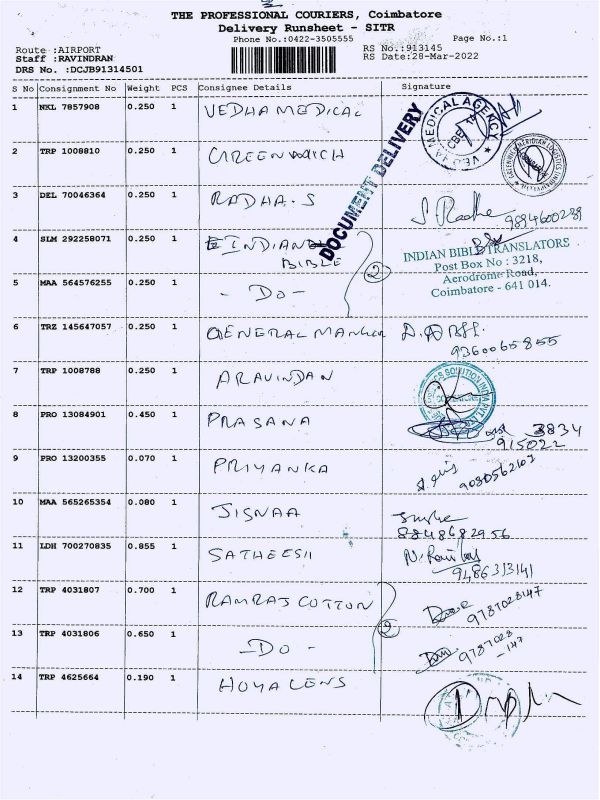 THE PROFESSIONAL COURIERS, Coimbatore
Delivery Runsheet - SITR
Phone No.:0422-3505555 Page No.:1
Route :AIRPORT RS No.:913145
Staff :RAVINDRAN RS Date:28-Mar-2022
DRS No. :DCJB91314501
S No Consignment No Weight PCS Consignee Details Signature
1 NKL 7857908 0.250 1 VEDHA MEDICAL
VEDHA MEDICAL AGENCY
DOCUMENT DELIVERY
2 TRP 1008810 0.250 1 GREENWICH
3 DEL 70046364 0.250 1 RADHA.S S Radhe 9894600289
4 SLM 292258071 0.250 1 INDIAN
BIBLE 2
INDIAN BIBLE TRANSLATORS
Post Box No : 3218,
Aerodrome Road,
Coimbatore - 641 014.
5 MAA 564576255 0.250 1 - Do -
6 TRZ 145647057 0.250 1 GENERAL MANGER
9360065855
7 TRP 1008788 0.250 1 ARAVINDAN
8 PRO 13084901 0.450 1 PRASANA 3834
915022
9 PRO 13200355 0.070 1 PRIYANKA
9080562107
10 MAA 565265354 0.080 1 JISNAA
8848682956
11 LDH 700270835 0.855 1 SATHEESH
9486313141
12 TRP 4031807 0.700 1 RAMRAJ COTTON 9787028147
2
13 TRP 4031806 0.650 1 - Do - 9787028
-147
14 TRP 4625664 0.190 1 HOYA LENS